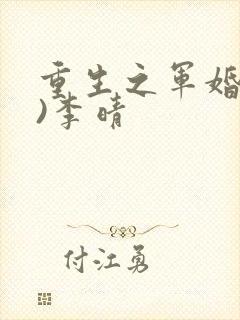 重生之军婚
)李晴
付江勇